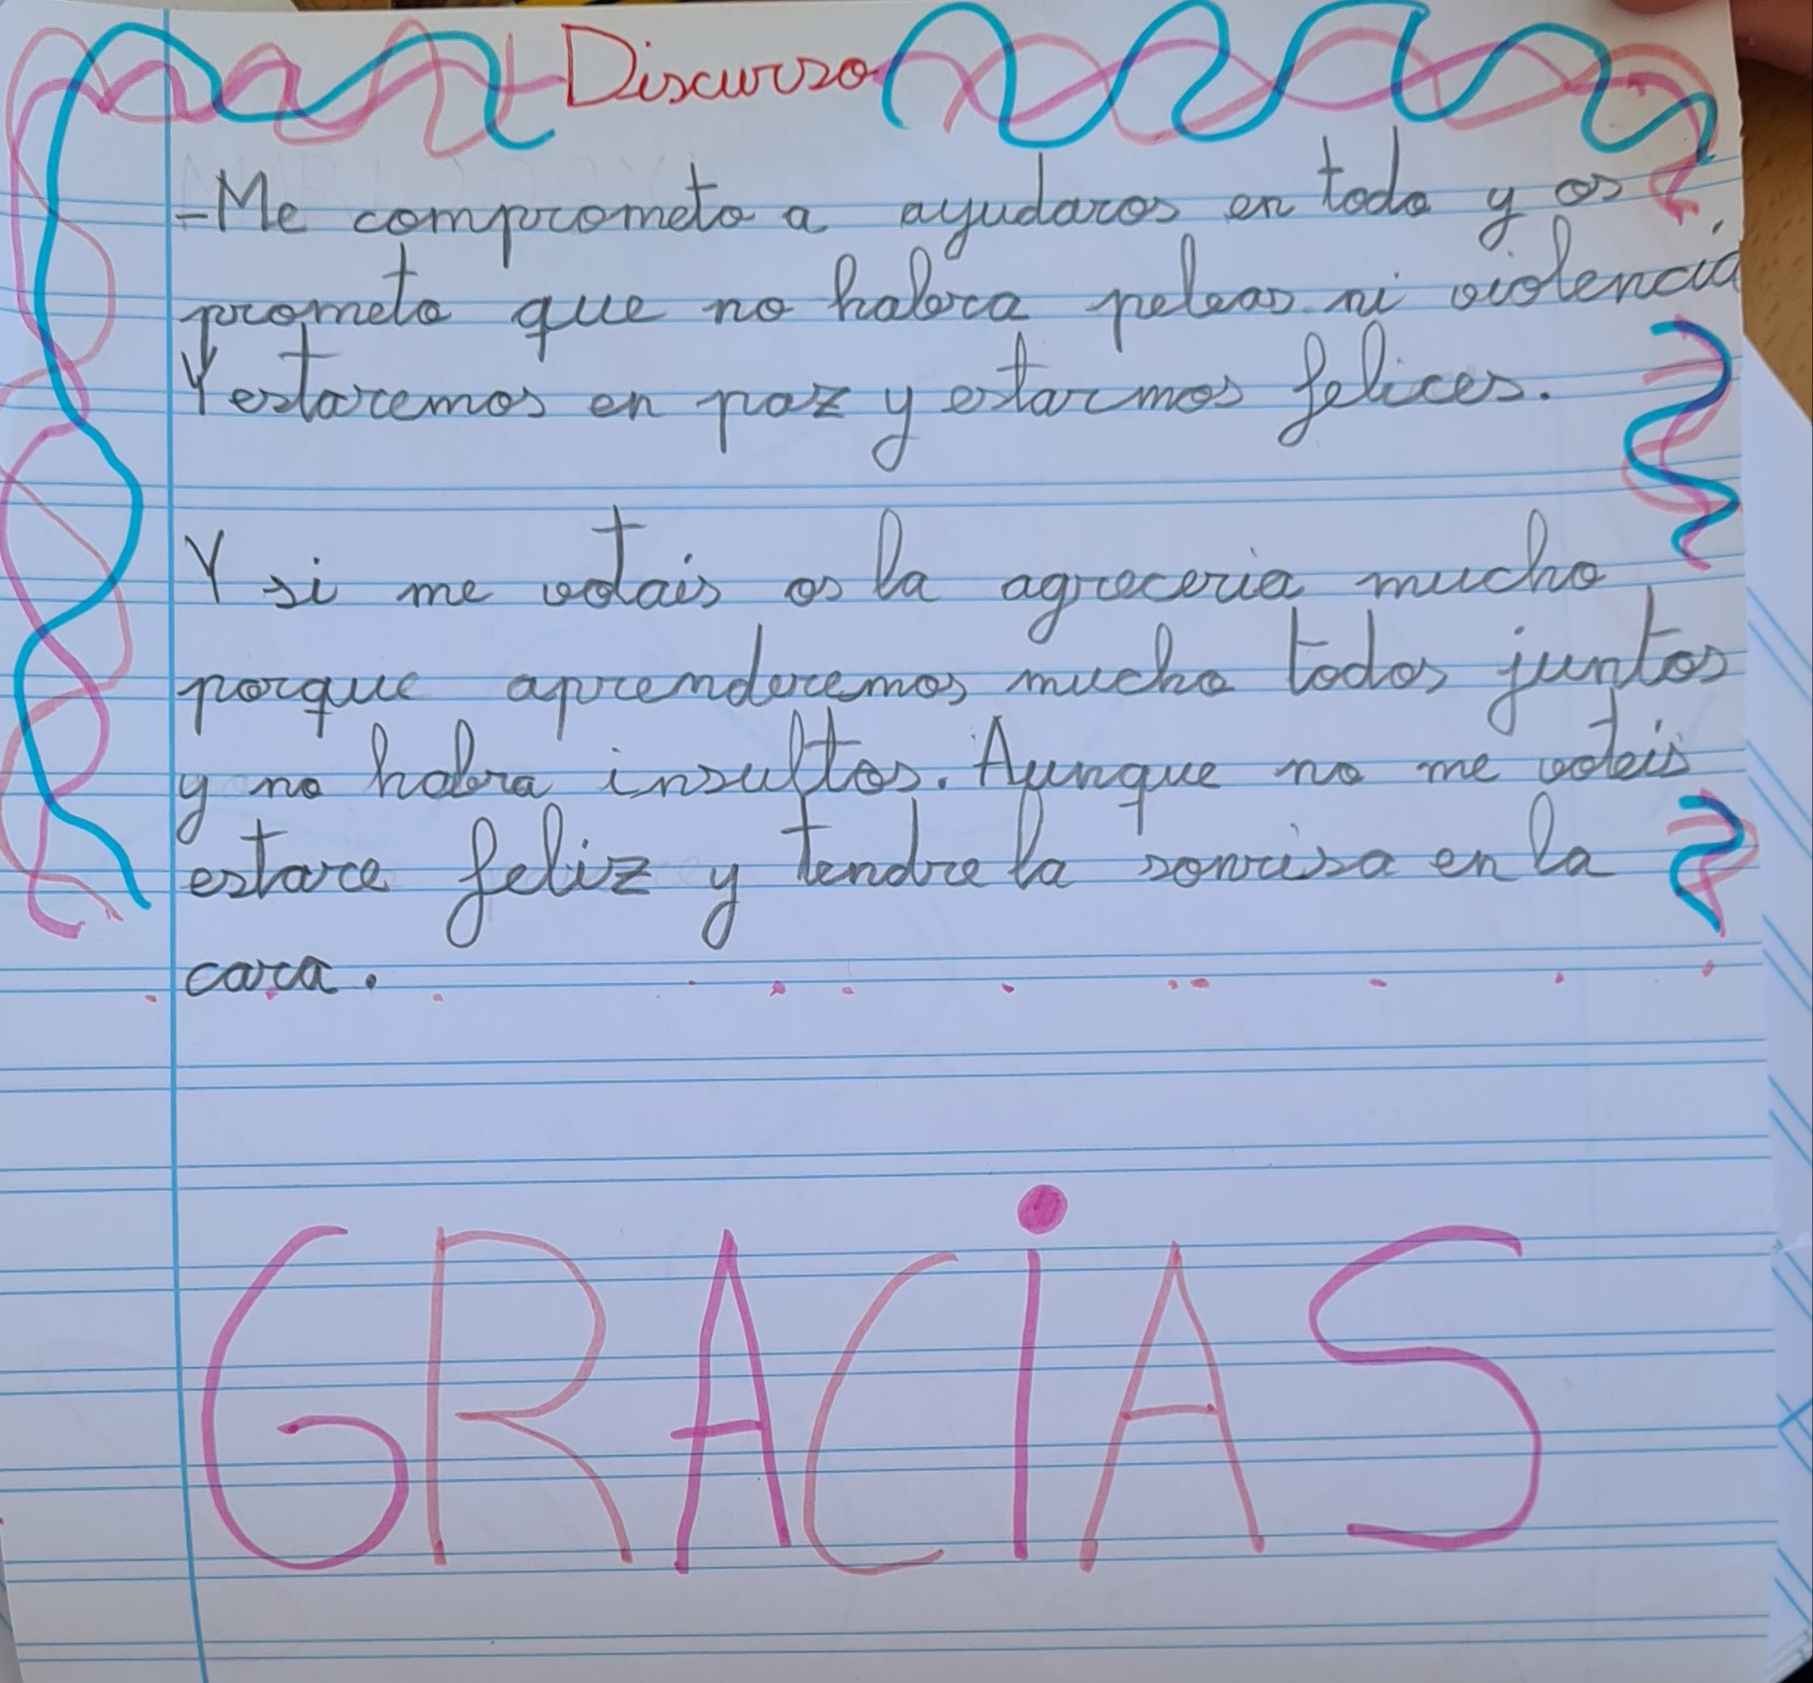 Discurso
-Me comprometo a ayudaros en todo y os
prometo que no habra peleas ni violencia.
Y estaremos en paz y estarmos felices.
Y si me votais os la agreceria mucho
porque aprenderemos mucho todos juntos
y no habra insultos. Aunque no me voteis
estare feliz y tendre la sonrisa en la
cara.
GRACiAS